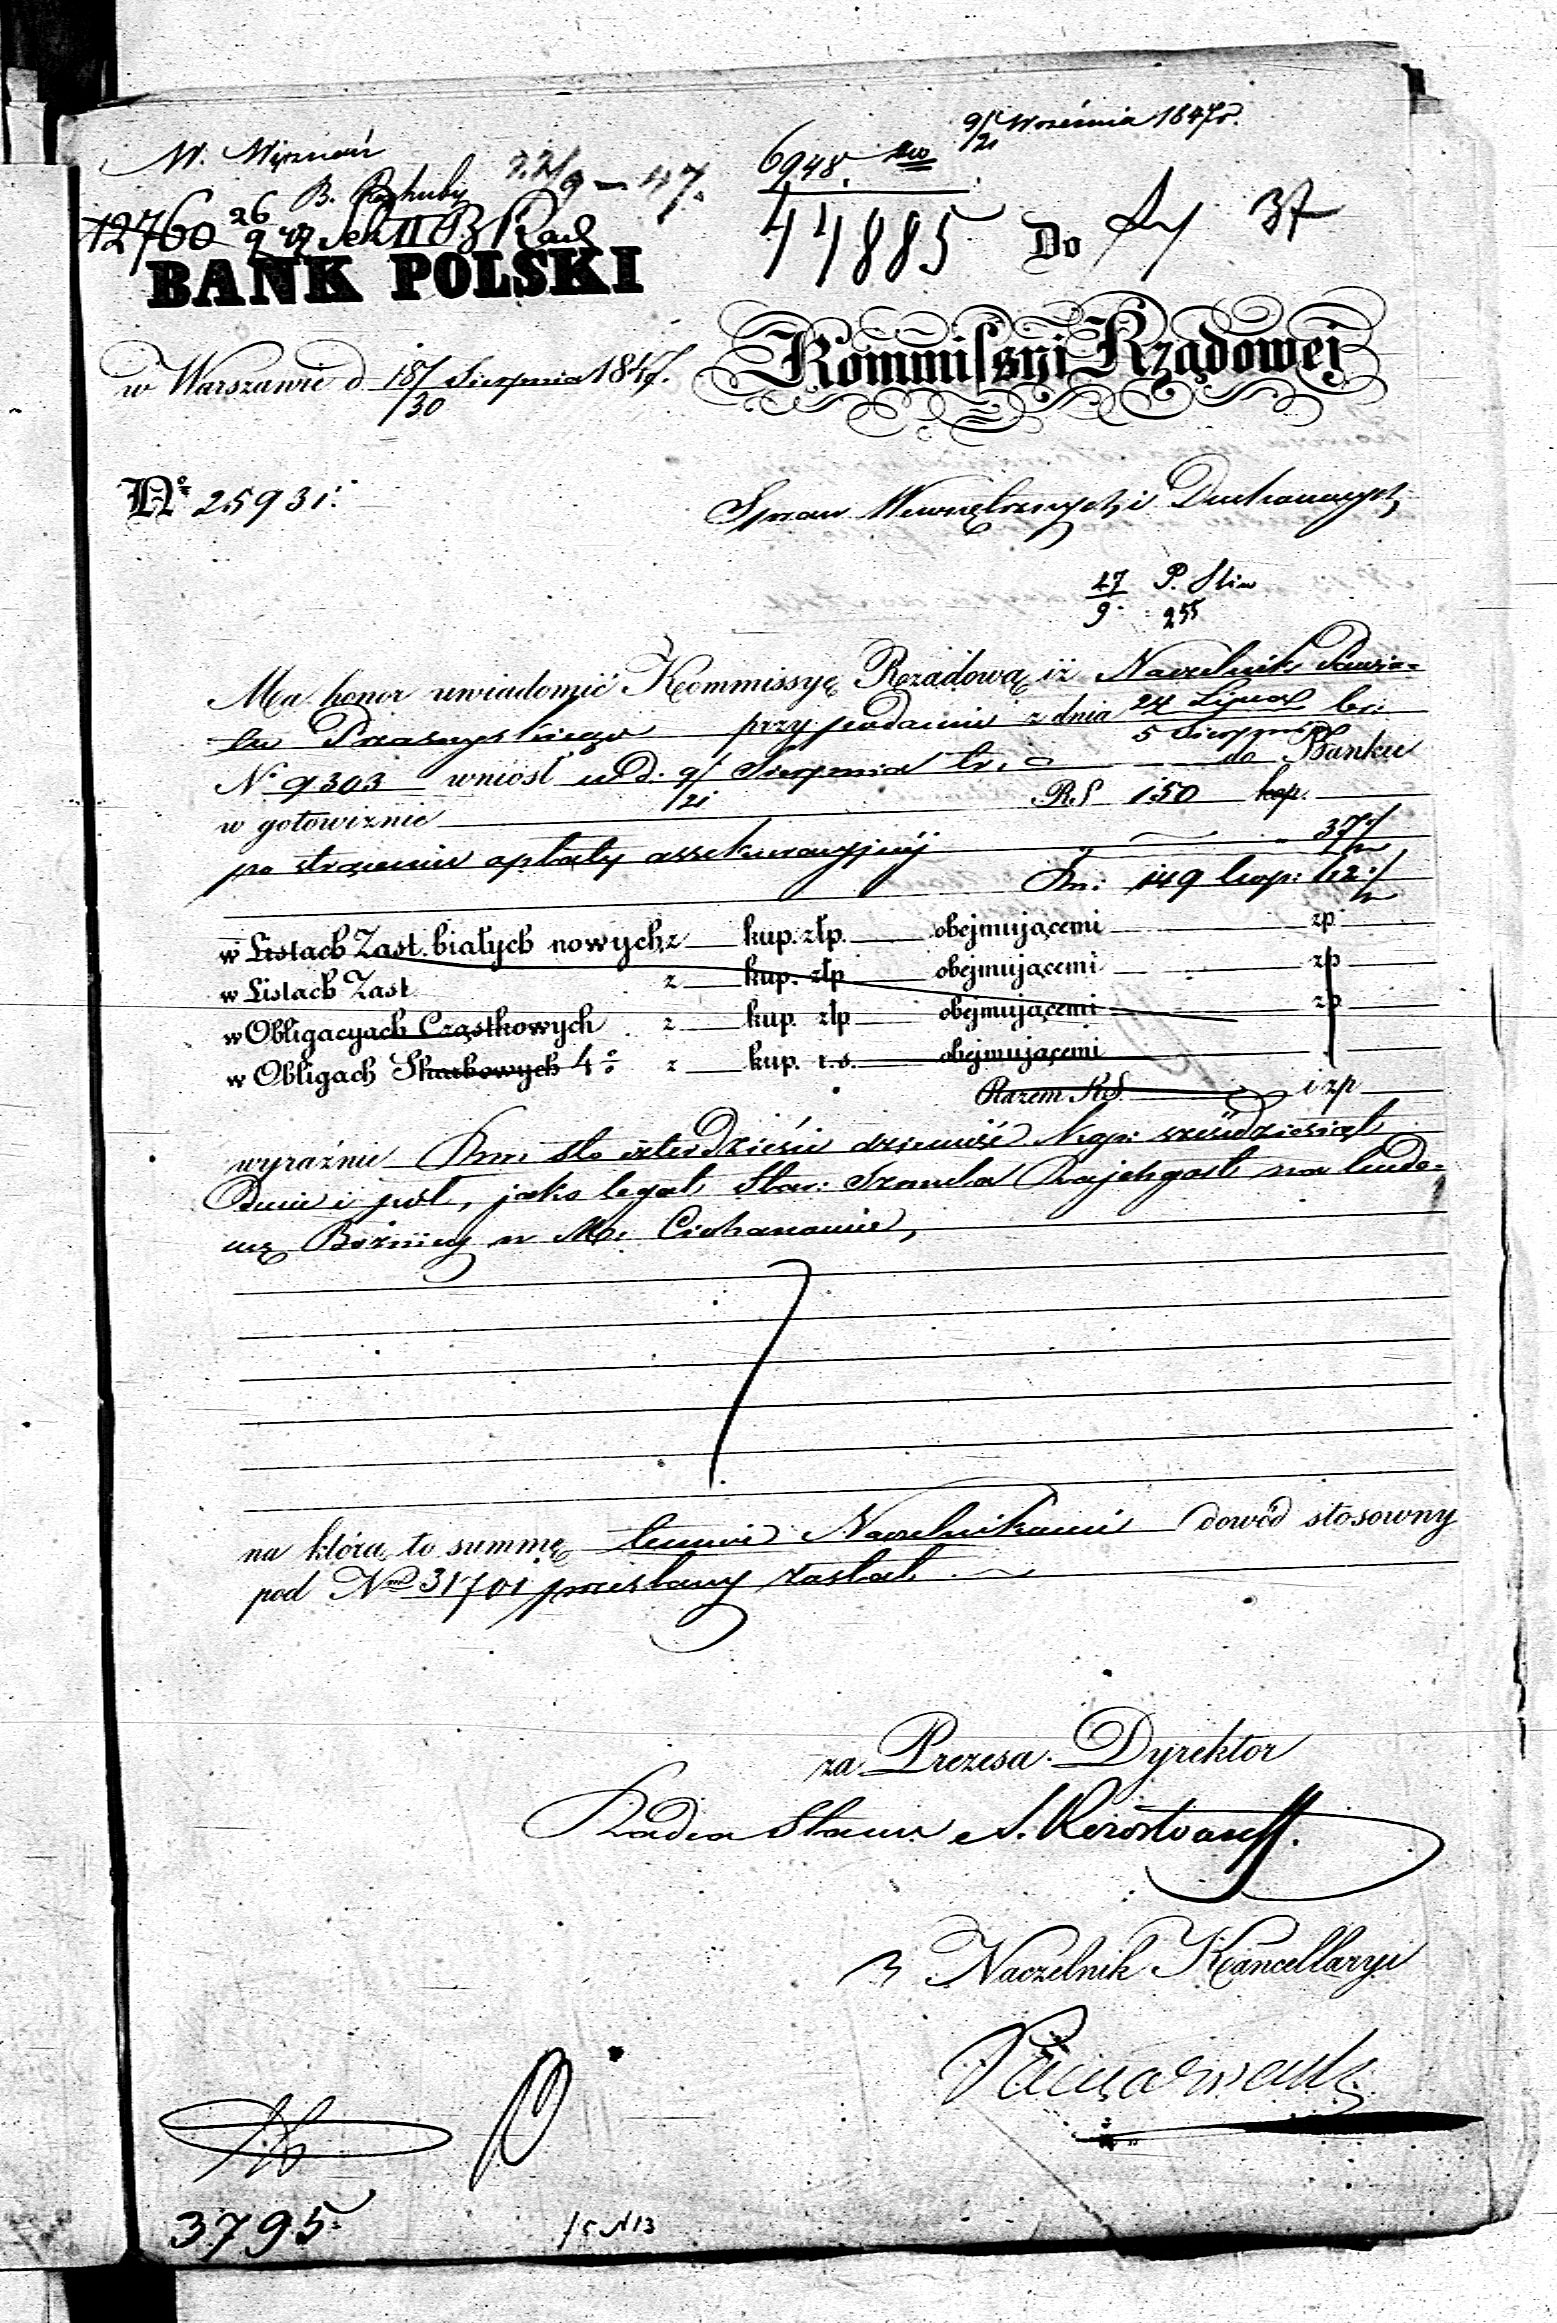 9/21 Września 1847 r.
6948.
22/9 — 47.
12760 26/9 47 Sek II
44885 Do 37
BANK POLSKI
Kommissyi Rządowej
w Warszawie d 18/30 Sierpnia 1847.
No 25931.
Spraw Wewnętrznych i Duchownych
27/9 P.
255
Ma honor uwiadomić Kommissyę Rządową iż Naczelnik Powia-
tu Przasnyskiego przy podaniu z dnia 24 Lipca / 5 Sierpnia br:
No 9303 wniósł w d. 9/21 Sierpnia br. do Banku
w gotowiznie RS 150 kop.
po strąceniu opłaty assekuracyjnéj 37½
Rs: 149 kop: 62½
w Listach Zast. białych nowych z kup. złp. obejmującemi zp
w Listach Zast z kup. złp obejmującemi zp
w Obligacyach Cząstkowych z kup. złp obejmującemi zp
w Obligach Skarbowych 4% z kup. r.s. obejmującemi
Razem RS i zp
wyraźnie Rsr. sto czterdzieści dziewięć kop: sześćdziesiąt
dwie i pół, jako legat Star: Szmula Rajchgolt na budo-
wę Bóżnicy w M. Ciechanowie,
na którą to summę temuż Naczelnikowi dowód stosowny
pod Nrm 31701 przesłany został.
za Prezesa Dyrektor
Radca Stanu
Naczelnik Kancellaryi
3795